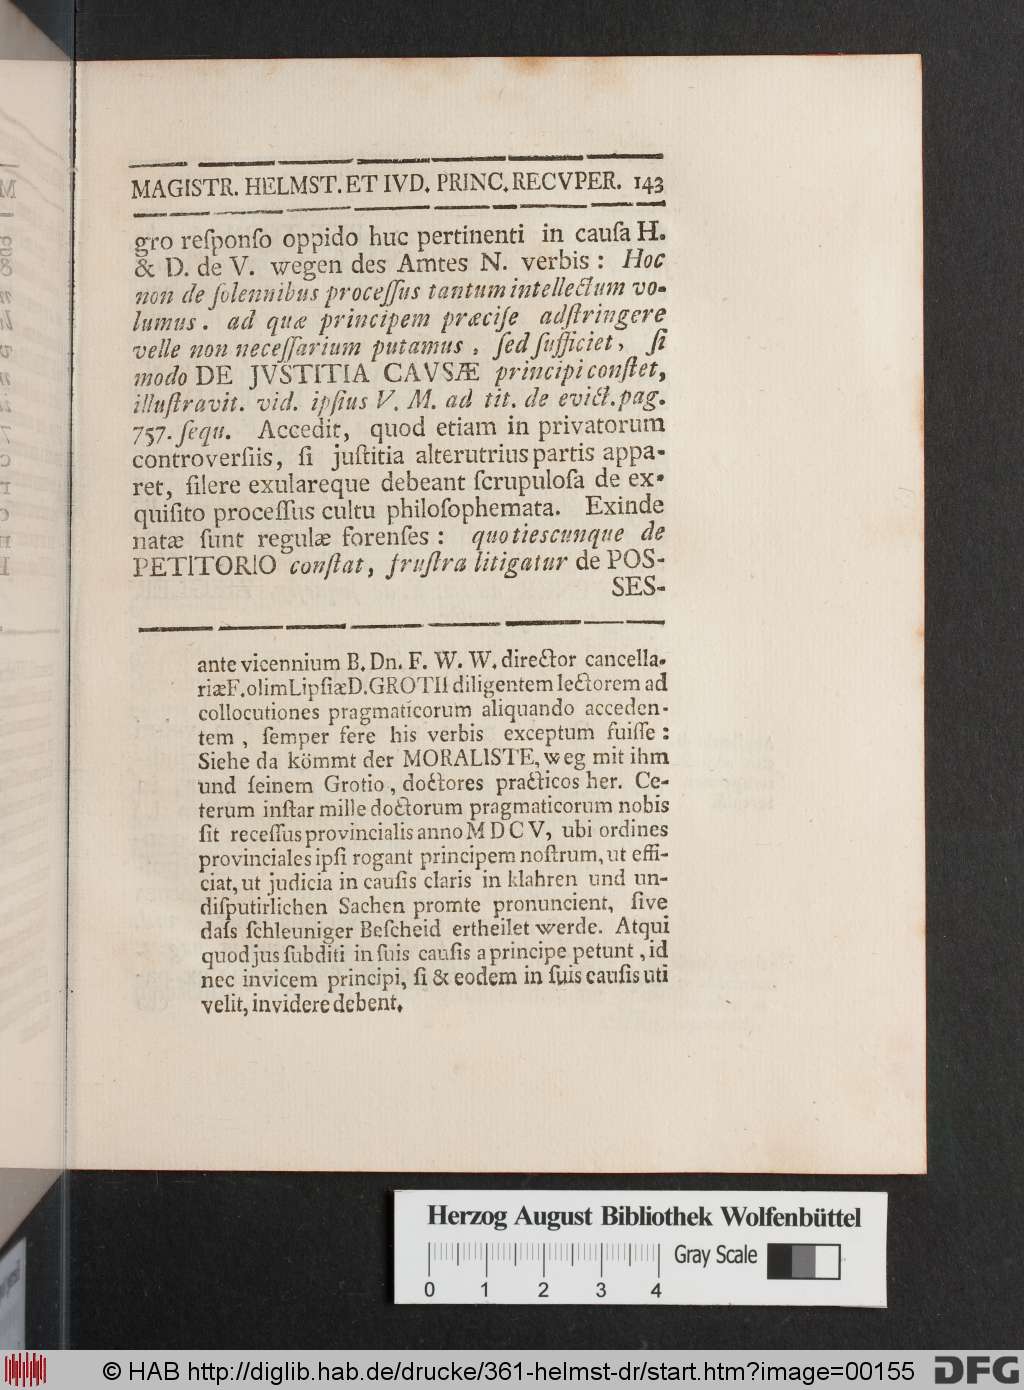 MAGISTR. HELMST. ET IVD. PRINC. RECVPER. 143
gro reſponſo oppido huc pertinenti in cauſa H.
& D. de V. wegen des Amtes N. verbis : Hoc
non de ſolennibus proceſſus tantum intellectum vo-
lumus. ad quæ principem præciſe adſtringere
velle non neceſſarium putamus, ſed ſufficiet, ſi
modo DE JVSTITIA CAVSÆ principi conſtet,
illuſtravit. vid. ipſius V. M. ad tit. de evict. pag.
757. ſequ. Accedit, quod etiam in privatorum
controverſiis, ſi juſtitia alterutrius partis appa-
ret, ſilere exulareque debeant ſcrupuloſa de ex-
quiſito proceſſus cultu philoſophemata. Exinde
natæ ſunt regulæ forenſes : quotiescunque de
PETITORIO conſtat, fruſtra litigatur de POS-
SES-
ante vicennium B. Dn. F. W. W. director cancella-
riæ F. olim Lipſiæ D. GROTII diligentem lectorem ad
collocutiones pragmaticorum aliquando acceden-
tem, ſemper fere his verbis exceptum fuiſſe :
Siehe da kömmt der MORALISTE, weg mit ihm
und ſeinem Grotio, doctores practicos her. Ce-
terum inſtar mille doctorum pragmaticorum nobis
ſit receſſus provincialis anno M D C V, ubi ordines
provinciales ipſi rogant principem noſtrum, ut effi-
ciat, ut judicia in cauſis claris in klahren und un-
diſputirlichen Sachen promte pronuncient, ſive
daſs ſchleuniger Beſcheid ertheilet werde. Atqui
quod jus ſubditi in ſuis cauſis a principe petunt, id
nec invicem principi, ſi & eodem in ſuis cauſis uti
velit, invidere debent.
Herzog August Bibliothek Wolfenbüttel
Gray Scale
0 1 2 3 4
© HAB http://diglib.hab.de/drucke/361-helmst-dr/start.htm?image=00155
DFG